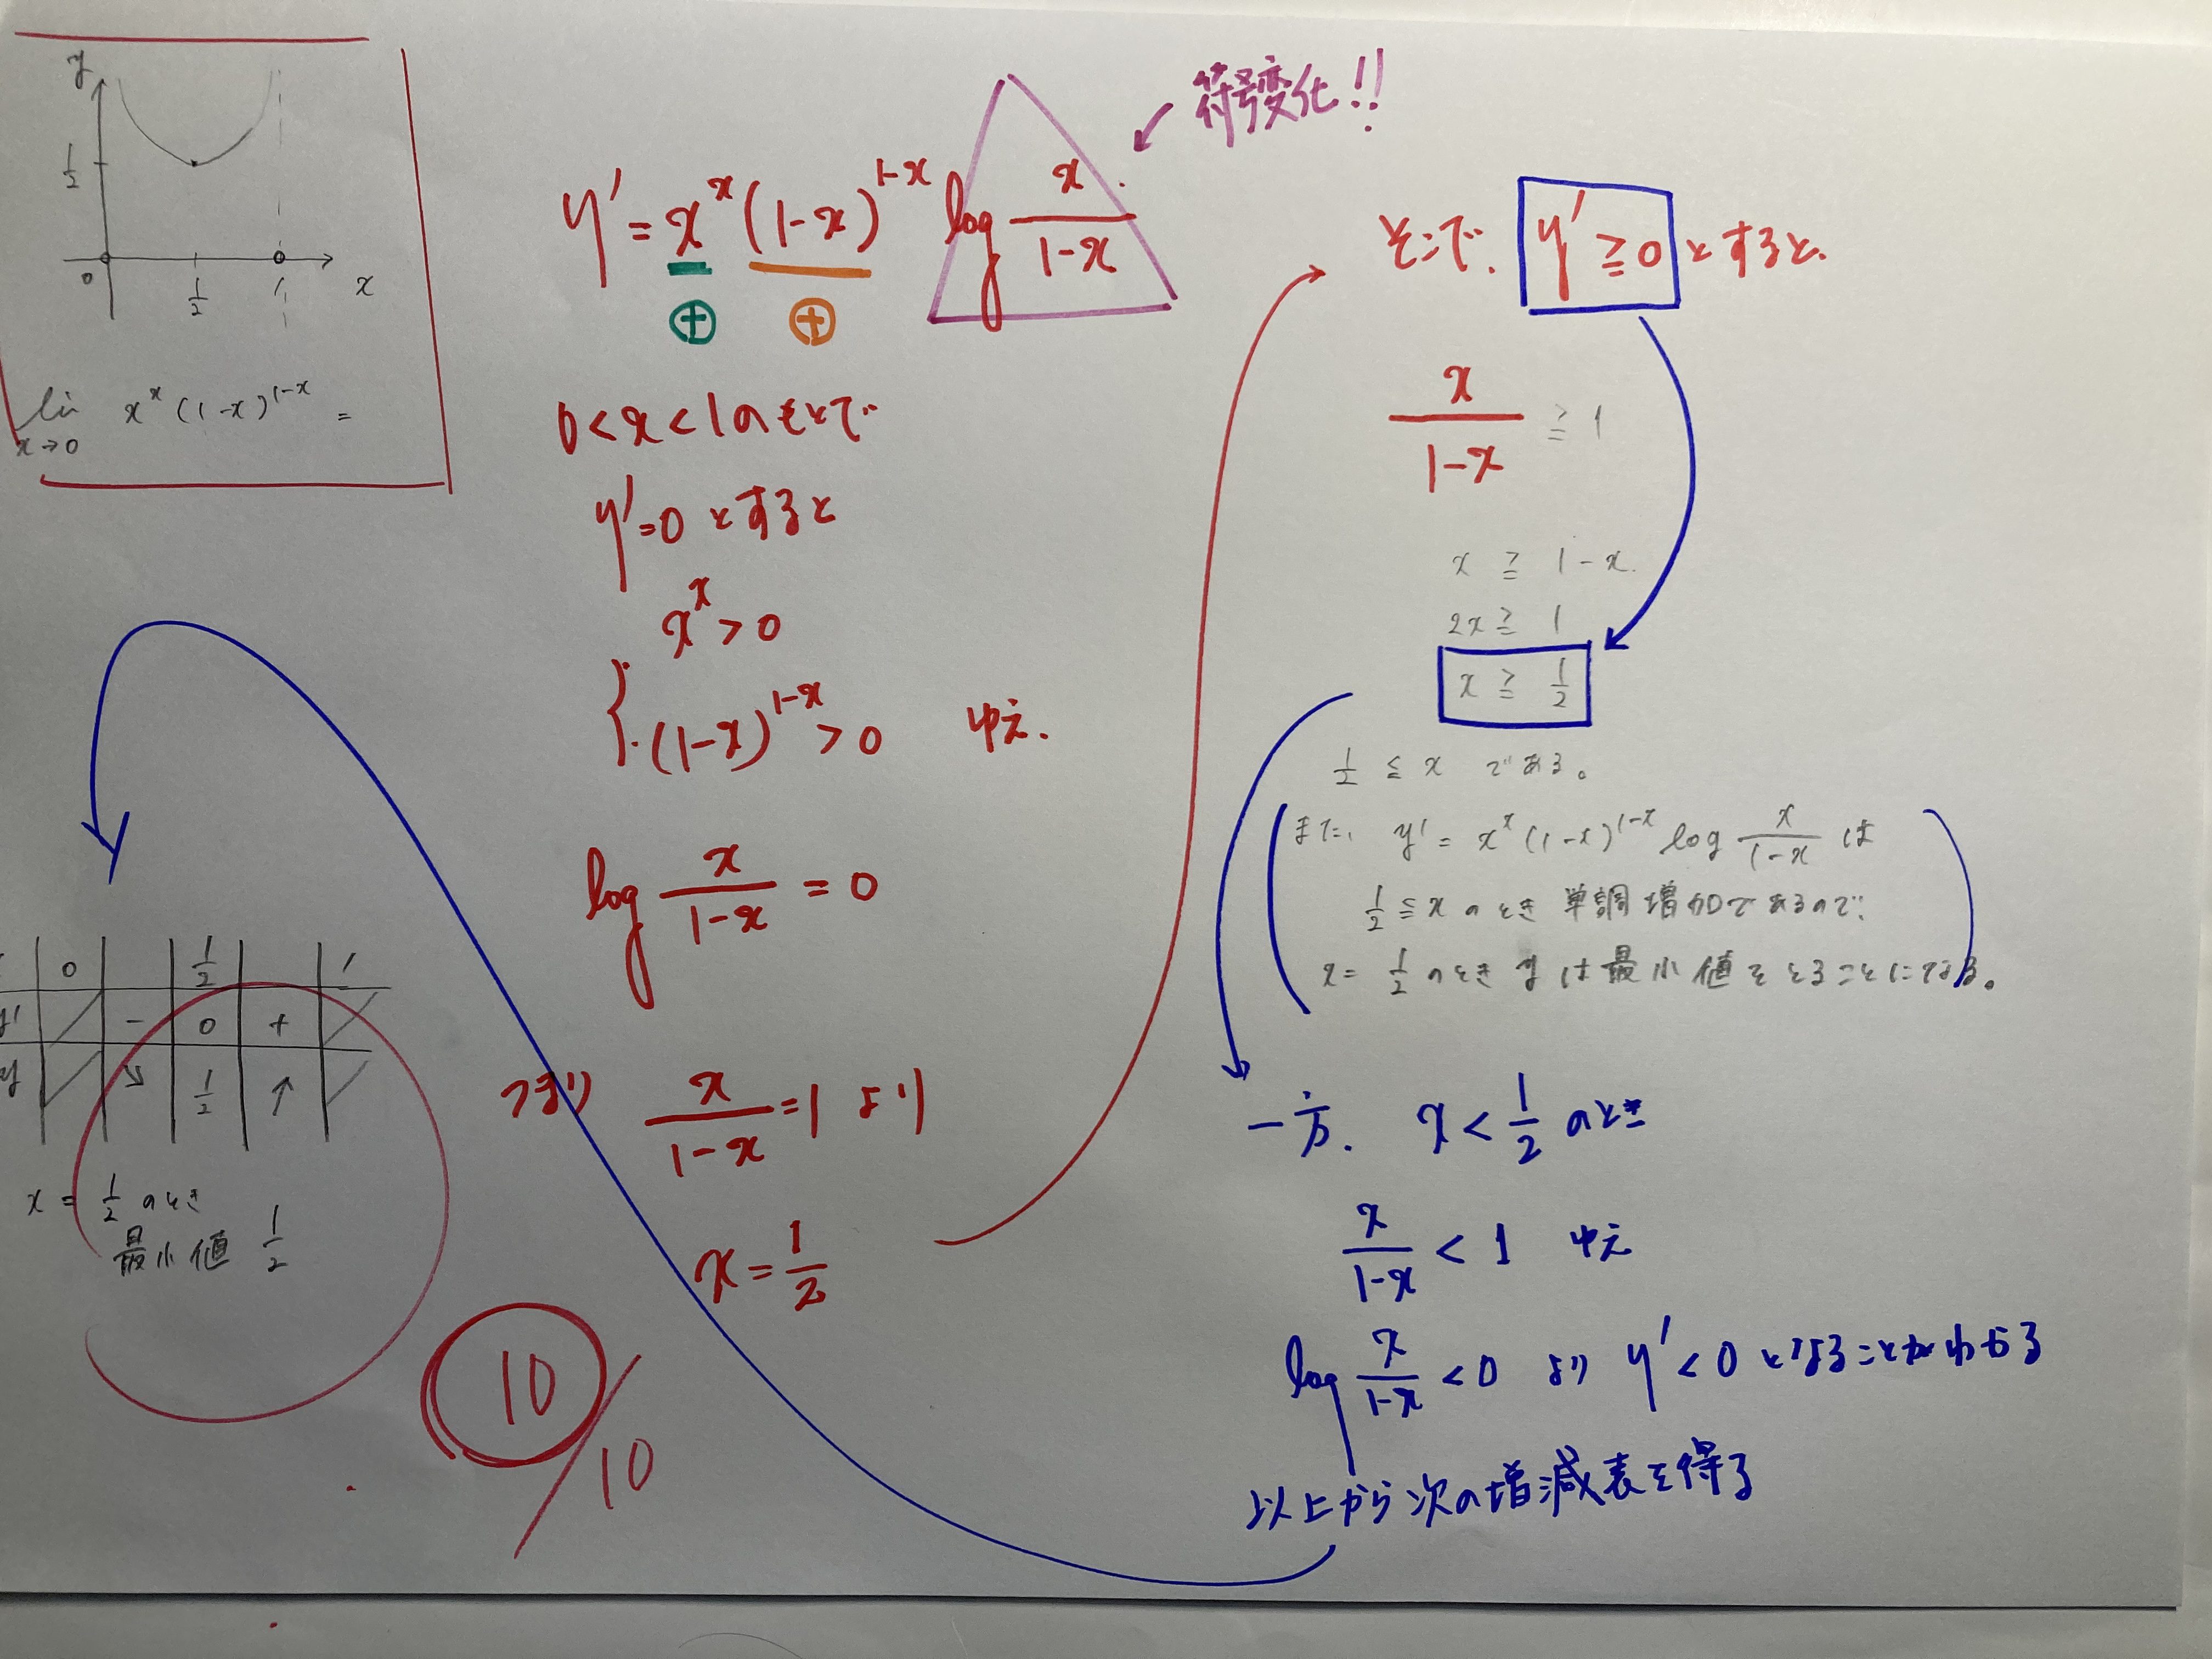 y
1/2
0 1/2 1 x
lim x→0 x^x (1-x)^{1-x} =
符号変化!!
y' = x^x (1-x)^{1-x} log x/(1-x)
⊕ ⊕
0<x<1のもとで
y'=0 とすると
{ x^x > 0
(1-x)^{1-x} > 0 ゆえ.
log x/(1-x) = 0
つまり x/(1-x) = 1 より
x = 1/2
そこで、 y' ≧ 0 とすると.
x/(1-x) ≧ 1
x ≧ 1-x.
2x ≧ 1
x ≧ 1/2
1/2 ≦ x である。
また、 y' = x^x (1-x)^{1-x} log x/(1-x) は
1/2 ≦ x のとき 単調増加であるので、
x = 1/2 のとき y は最小値をとることになる。
一方. x < 1/2 のとき
x/(1-x) < 1 ゆえ
log x/(1-x) < 0 より y' < 0 となることがわかる
以上から次の増減表を得る
0 1/2 1
y' - 0 +
y ↘ 1/2 ↑
x = 1/2 のとき
最小値 1/2
10/10